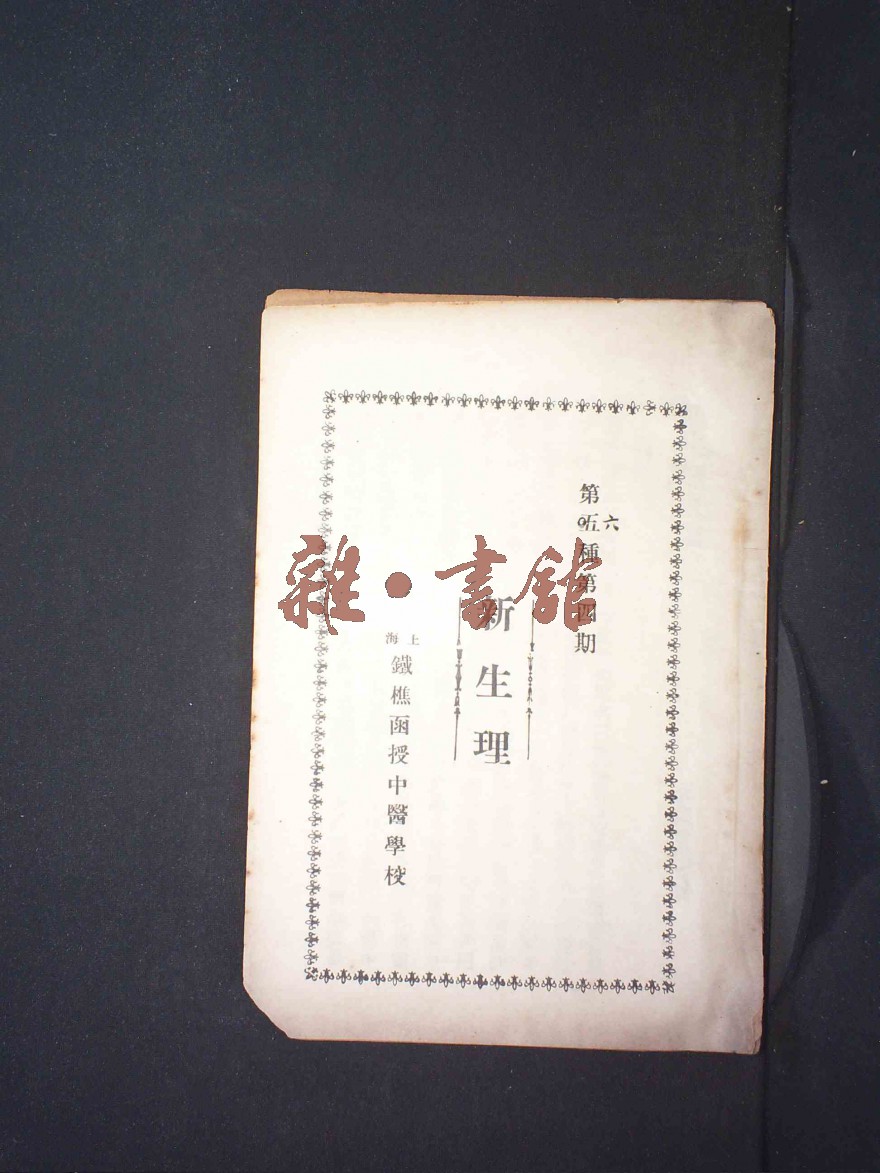 第五種第四期
六
新生理
上海
鐵樵函授中醫學校
雜•書館